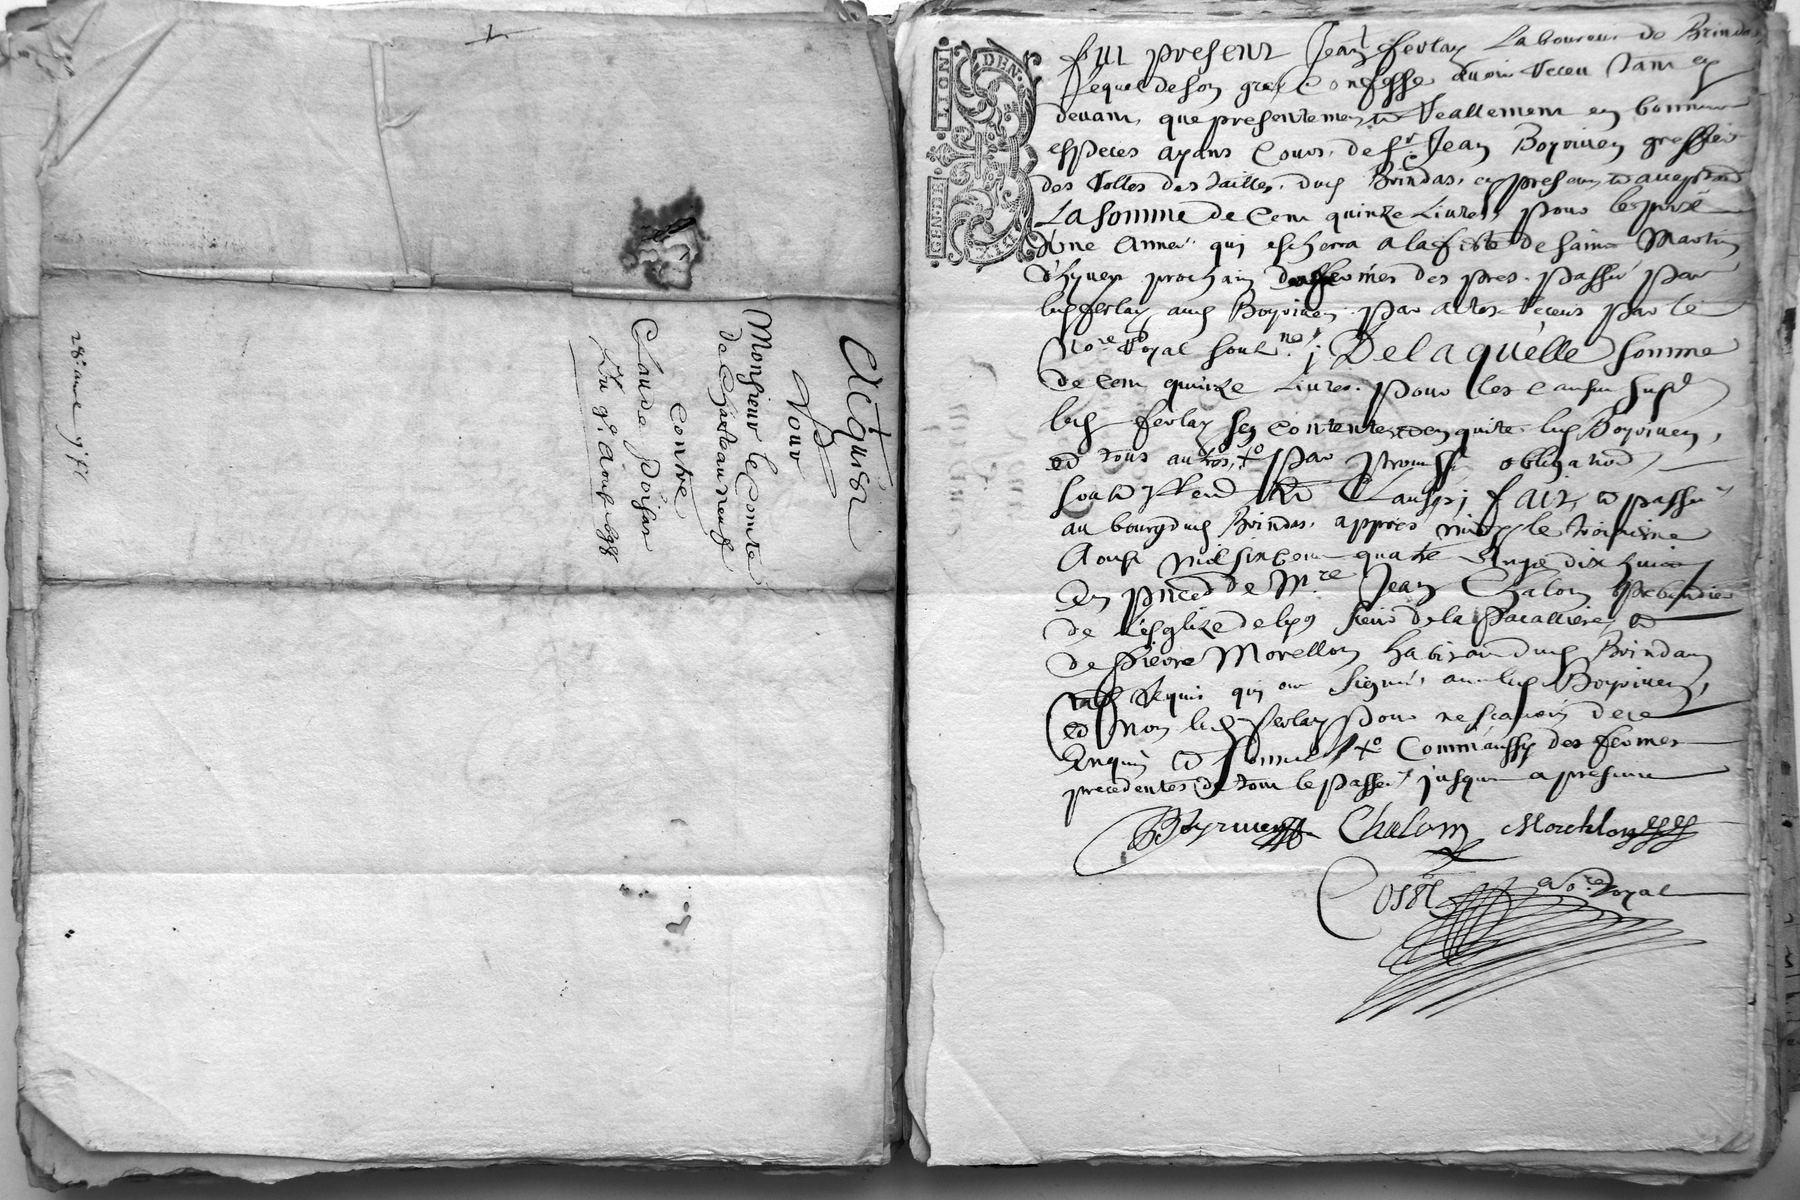 Acquit
Pour
Monsieur le Comte
de Chasteauneuf
Contre
Claude
Du 9e Aoust 1698
LION
DEN.
GENDE
DIX
fut present Jean ferlay Laboureur de Brindas
Lequel de son gré Confesse avoir Receu tant cy
devant, que presentement et Reallement en bonnes
especes ayans Cours, de Sr Jean Boyriven greffier
des Rolles des tailles, dud Brindas, cy present et acceptant
La somme de Cent quinze Livres, pour le prix
d'une Année qui escherra a la feste de saint Martin
d'hyver prochain des fermes des pres passée par
led ferlay aud Boyriven par actes Receus par le
No.re Royal soubz.né; De laquelle somme
de Cent quinze Livres pour les causes susd
led ferlay s'en contente et en quitte led Boyriven,
et tous autres, par promesse obligation
Clauses; fait et passé
au bourg dud Brindas, appres midy le troisiesme
Aoust mil six Cent quatre vingt dix huict
En pnce de M.re Jean Chalom Prebendier
de l'esglize de Sieur de la et
de Pierre Morellon habitant dud Brindas
Requis qui ont signé avec led Boyriven,
et Non led ferlay pour ne scavoir de ce
Enquis et Comm'aussy des fermes
precedentes de tout le passé jusques a present
Boyriven Chalom Morellon
No.re Royal